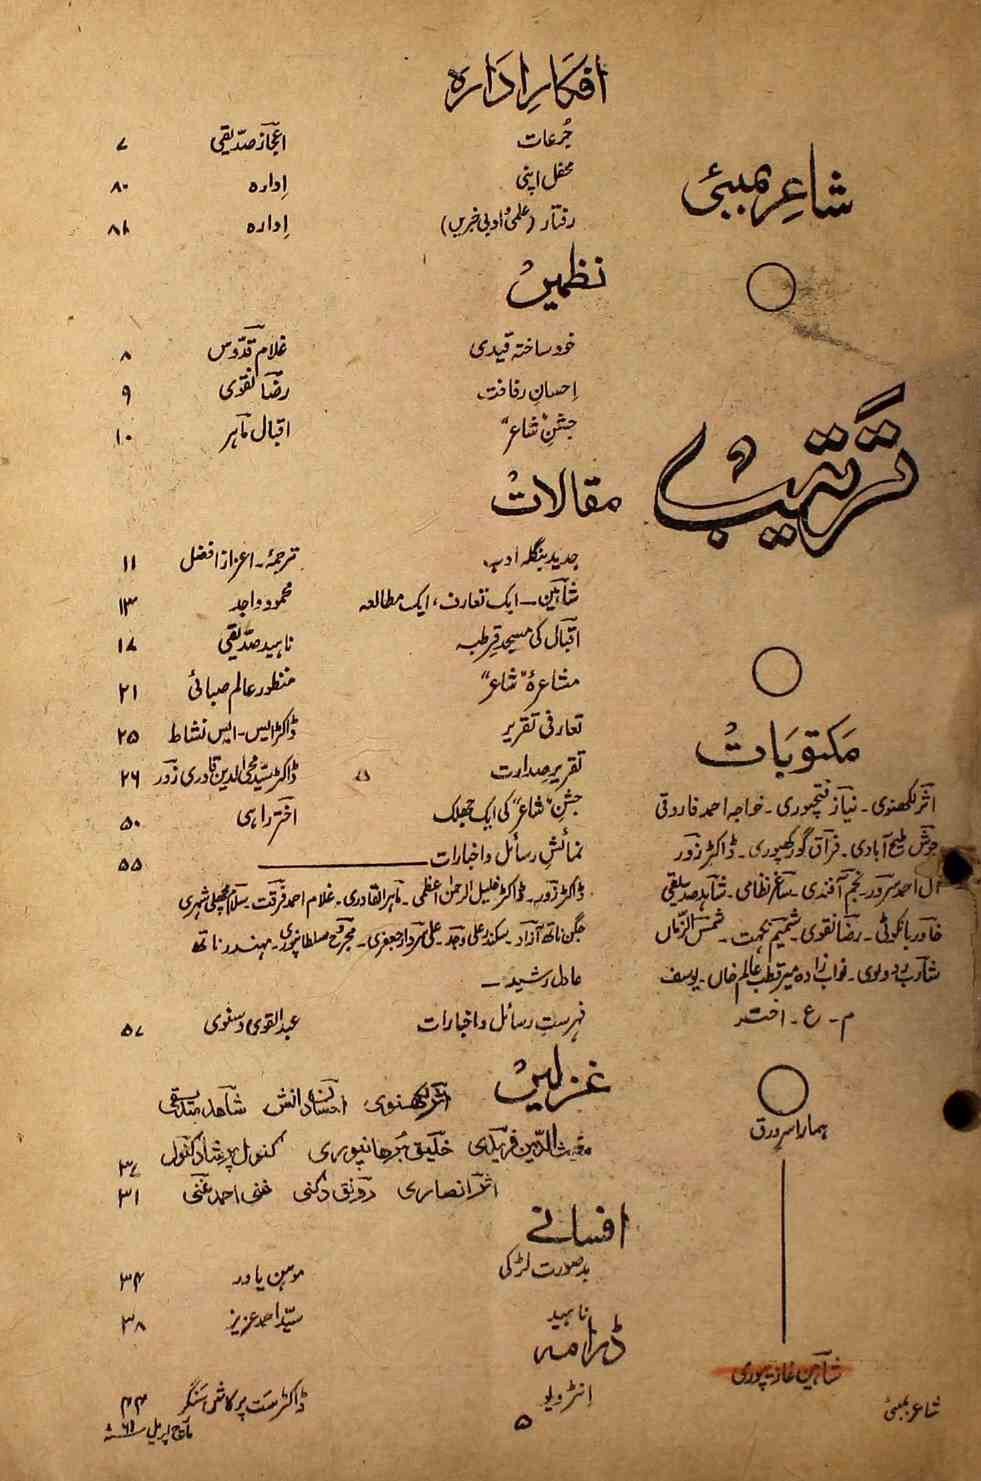 شاعر بمبئی
ترتیب
مکتوبات
اثر لکھنوی۔ نیاز فتحپوری۔ خواجہ احمد فاروقی
جوش ملیح آبادی۔ فراق گورکھپوری۔ ڈاکٹر زور
آل احمد سرور۔ نجم آفندی۔ ساغر نظامی۔ شاہد صدیقی
خاور بانکوٹی۔ رضا نقوی۔ شمیم نکہت۔ شمس الزماں
شارب ردولوی۔ نواب زادہ میر قطب عالم خاں۔ یوسف
م۔ ع۔ اختر
ہمارا سرورق
شاہین غازیپوری
افکارِ ادارہ
جُرعات اعجاز صدیقی ۷
محفل اپنی اِدارہ ۸۰
رفتار (علمی و ادبی خبریں) اِدارہ ۸۱
نظمیں
خود ساختہ قیدی غلام قدّوس ۸
اِحسانِ رفاقت رضا نقوی ۹
جشنِ "شاعر" اقبال ماہر ۱۰
مقالات
جدید بنگلہ ادب ترجمہ۔ اعزاز افضل ۱۱
شاہین — ایک تعارف، ایک مطالعہ محمود واجد ۱۳
اقبال کی مسجدِ قرطبہ ناہید صدّیقی ۱۷
مشاعرۂ "شاعر" منظور عالم صبائی ۲۱
تعارفی تقریر ڈاکٹر ایس۔ ایس نشاط ۲۵
تقریرِ صدارت ڈاکٹر سیّد محی الدین قادری زور ۲۶
جشنِ "شاعر" کی ایک جھلک اختر راہی ۵۰
نمائشِ رسائل و اخبارات ۵۵
ڈاکٹر زور۔ ڈاکٹر خلیل الرحمٰن اعظمی۔ ماہر القادری۔ غلام احمد فرقت۔ سلام مچھلی شہری
جگن ناتھ آزاد۔ سکندر علی وجد۔ علی سردار جعفری۔ مجروح سلطانپوری۔ مہندر ناتھ
عادل رشید۔
فہرستِ رسائل و اخبارات عبدالقوی دسنوی ۵۷
غزلیں
اثر لکھنوی احسان دانش شاہد صدیقی
مغیث الدین فریدی خلیق بُرھانپوری کنول پرشاد کنول ۳۷
اثر انصاری رونق دکنی غنی احمد غنی ۳۱
افسانے
بدصورت لڑکی موہن یاور ۳۴
ناہید سیّد احمد عزیز ۳۸
ڈرامہ
انٹرویو ڈاکٹر ست پرکاش سنگر ۴۴
شاعر بمبئی ۵ مارچ اپریل ۶۱ء